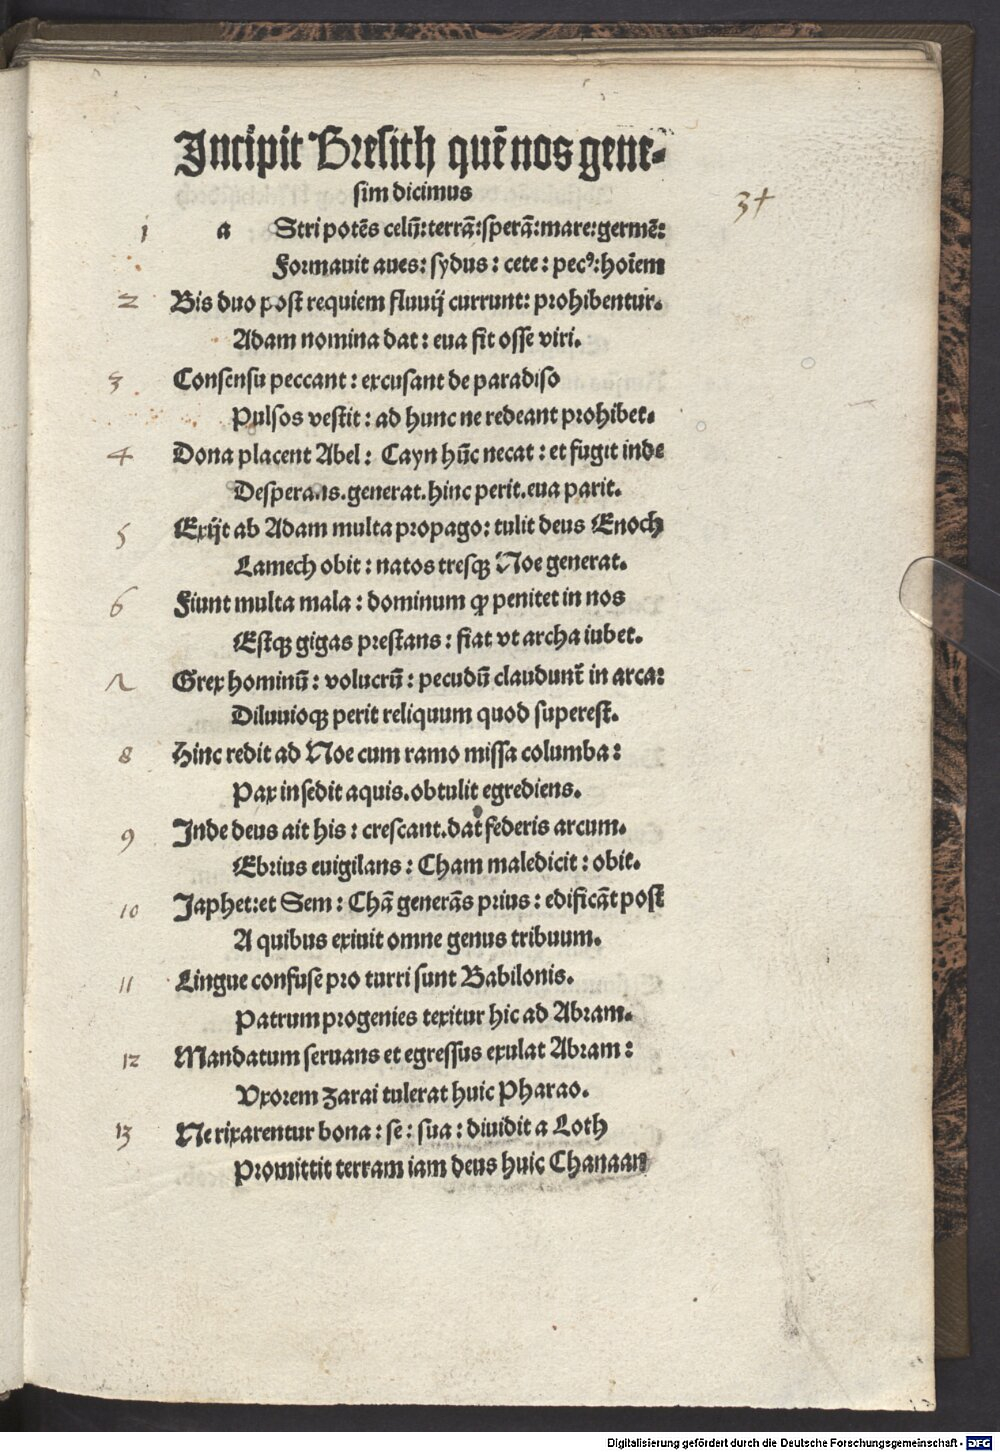 Incipit Bresith quē nos gene-
sim dicimus
34
1 a Stri potēs celū: terrā: sperā: mare: germē:
Formauit aues: sydus: cete: pecꝰ: hoīem
2 Bis duo post requiem fluuij currunt: prohibentur.
Adam nomina dat: eua fit osse viri.
3 Consensu peccant: excusant de paradiso
Pulsos vestit: ad hunc ne redeant prohibet.
4 Dona placent Abel: Cayn hūc necat: et fugit inde
Desperans. generat. hinc perit. eua parit.
5 Exijt ab Adam multa propago: tulit deus Enoch
Lamech obit: natos tresqꝫ Noe generat.
6 Fiunt multa mala: dominum ꝙ penitet in nos
Estqꝫ gigas prestans: fiat vt archa iubet.
7 Grex hominū: volucrū: pecudū claudunt̃ in arca:
Diluuioqꝫ perit reliquum quod superest.
8 Hinc redit ad Noe cum ramo missa columba:
Pax insedit aquis. obtulit egrediens.
9 Inde deus ait his: crescant. dat federis arcum.
Ebrius euigilans: Cham maledicit: obit.
10 Japhet: et Sem: Chā generās prius: edificāt post
A quibus exiuit omne genus tribuum.
11 Lingue confuse pro turri sunt Babilonis.
Patrum progenies texitur hic ad Abram.
12 Mandatum seruans et egressus exulat Abram:
Vxorem zarai tulerat huic Pharao.
13 Ne rixarentur bona: se: sua: diuidit a Loth
Promittit terram iam deus huic Chanaan
Digitalisierung gefördert durch die Deutsche Forschungsgemeinschaft - DFG